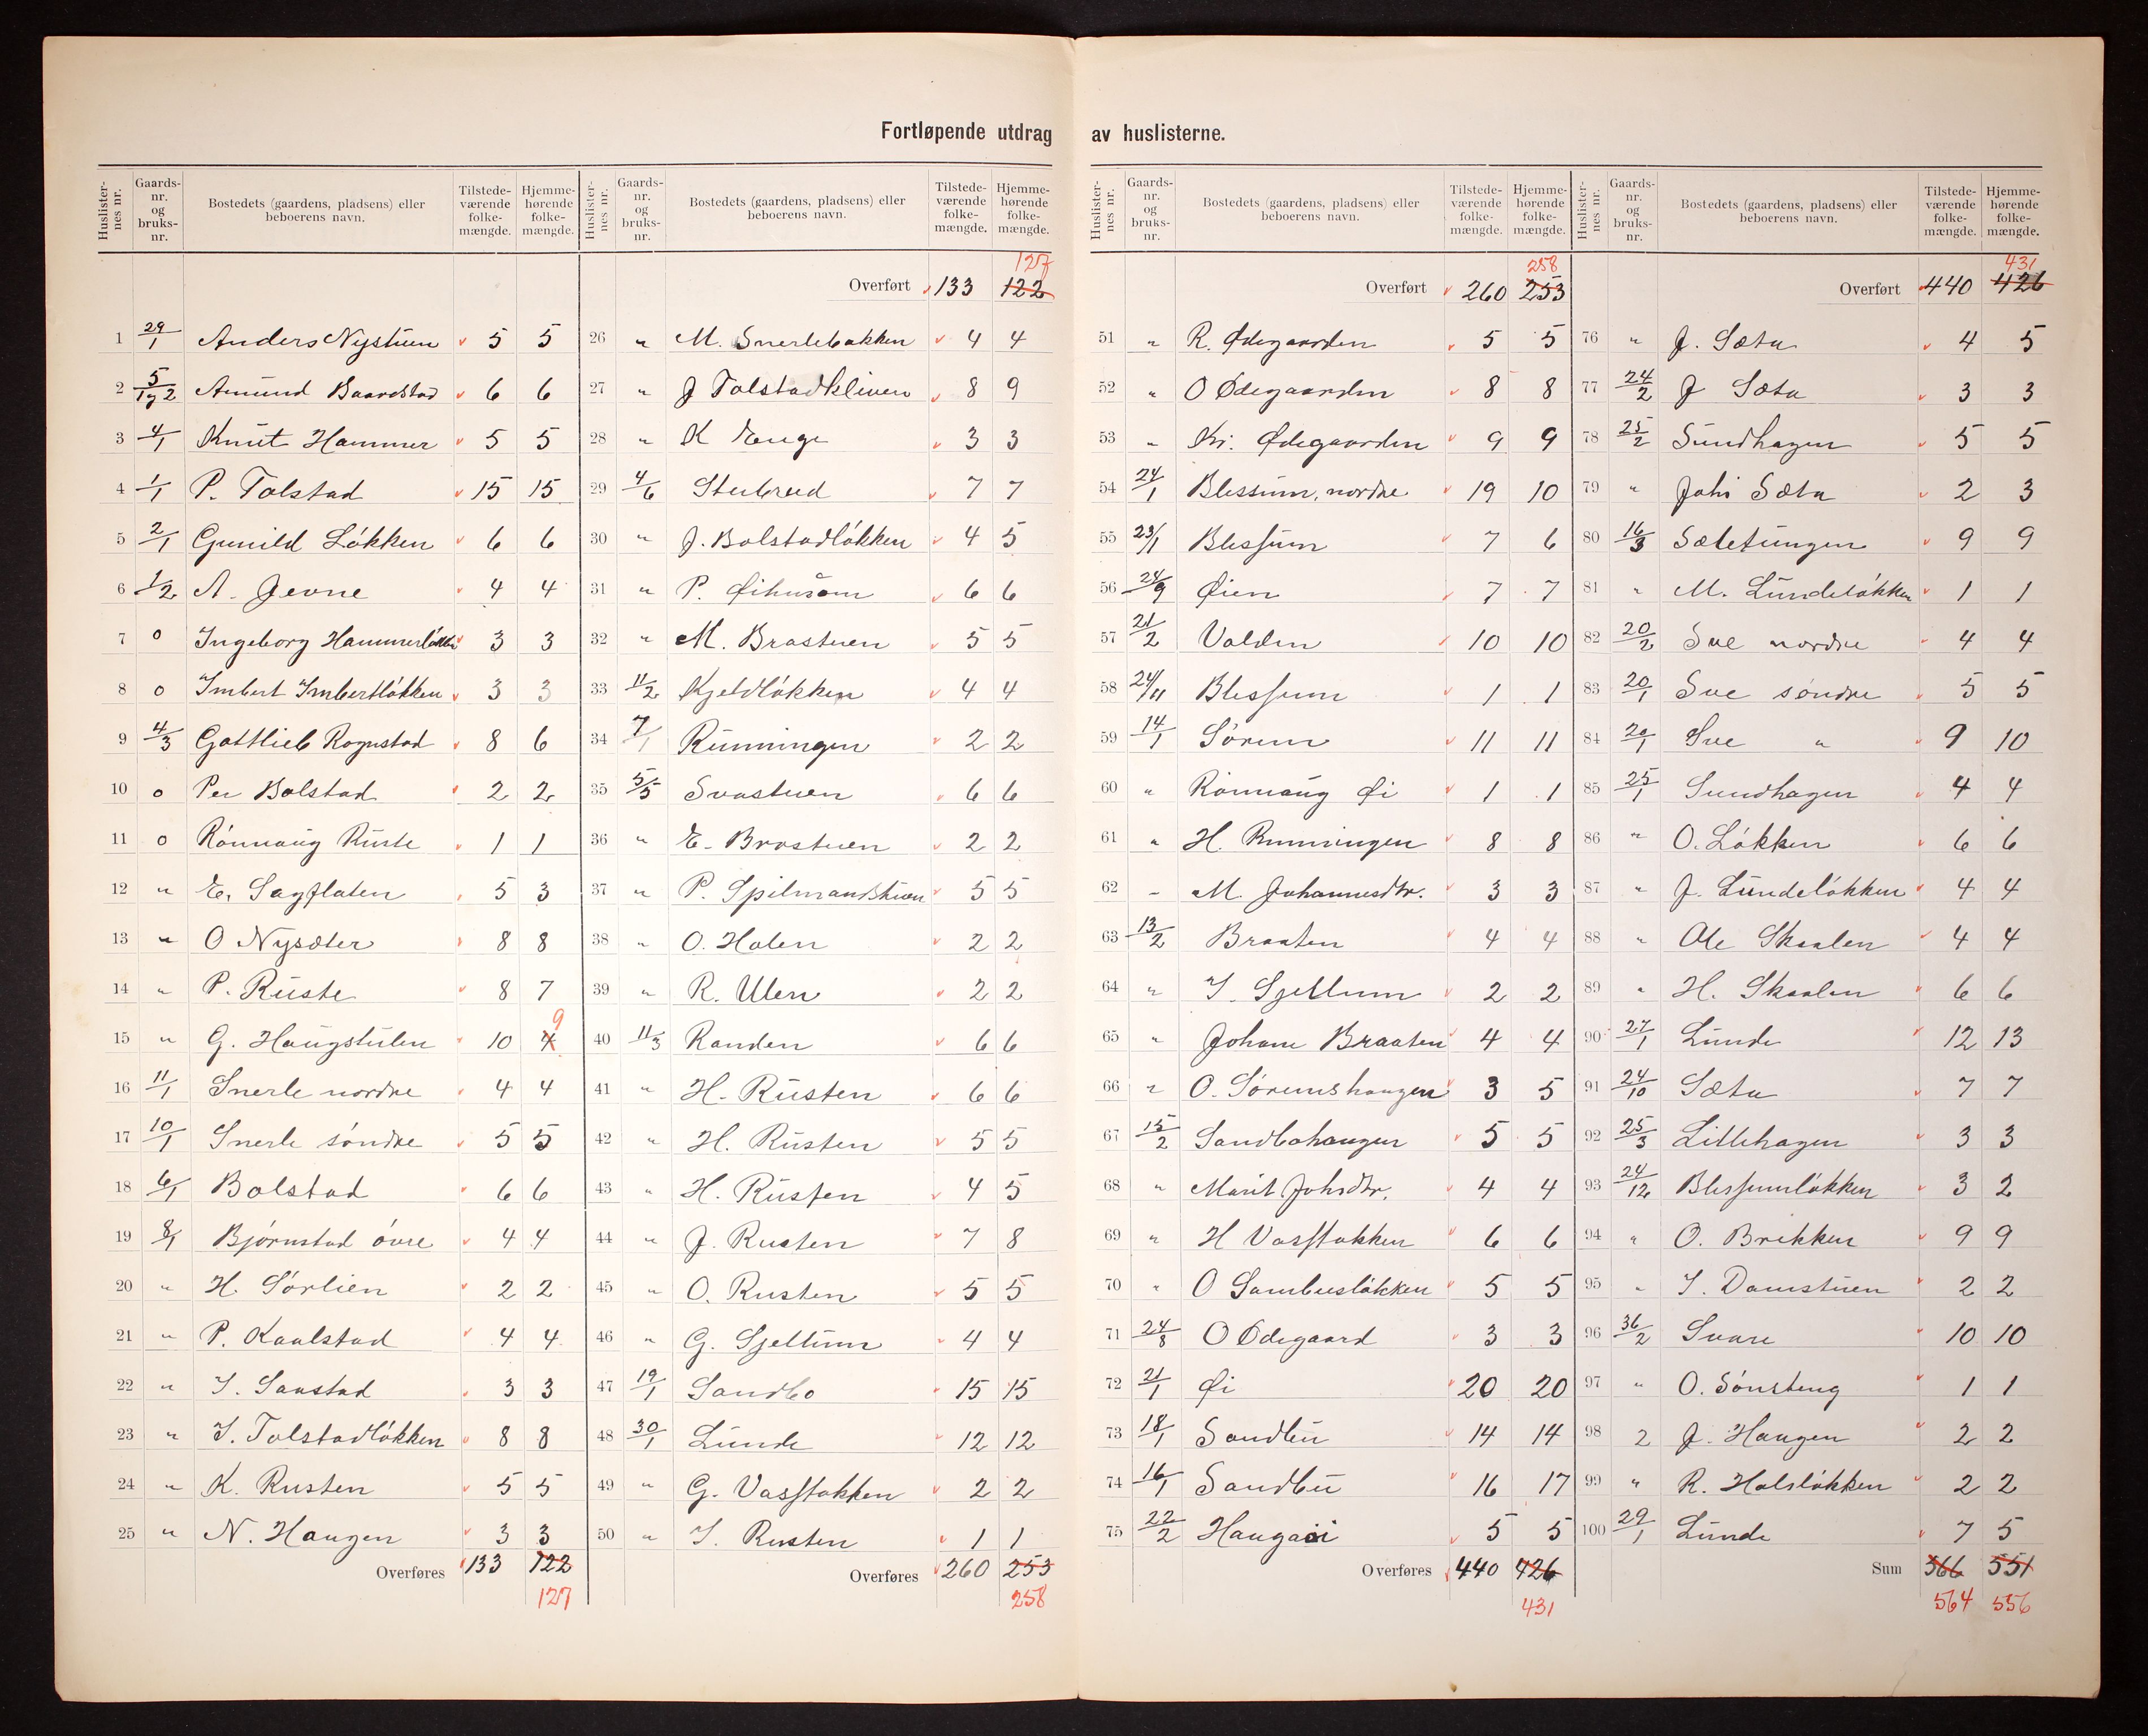 Fortløpende utdrag av huslisterne.
Huslisternes nr. Gaards-nr. og bruks-nr. Bostedets (gaardens, pladsens) eller beboerens navn. Tilstedeværende folkemængde. Hjemmehørende folkemængde.
1 29/1 Anders Nystuen 5 5
2 5/1 7 2 Amund Baardstad 6 6
3 4/1 Knut Hammer 5 5
4 1/1 P. Tolstad 15 15
5 2/1 Gunild Løkken 6 6
6 1/2 A. Jevne 4 4
7 0 Ingeborg Hammerløkken 3 3
8 0 Imbert Imbertløkken 3 3
9 4/3 Gottlieb Rognstad 8 6
10 0 Per Bolstad 2 2
11 0 Rønnaug Ruste 1 1
12 " E. Sagflaten 5 3
13 " O Nysæter 8 8
14 " P. Ruste 8 7
15 " G. Haugstulen 10 4 9
16 11/1 Snerle nordre 4 4
17 10/1 Snerle søndre 5 5
18 6/1 Bolstad 6 6
19 8/1 Bjørnstad øvre 4 4
20 " H. Sørlien 2 2
21 " P. Kaalstad 4 4
22 " I. Saustad 3 3
23 " I. Tolstadløkken 8 8
24 " K. Rusten 5 5
25 " N. Haugen 3 3
Overføres 133 122
127
Huslisternes nr. Gaards-nr. og bruks-nr. Bostedets (gaardens, pladsens) eller beboerens navn. Tilstedeværende folkemængde. Hjemmehørende folkemængde.
127
Overført 133 122
26 " M. Snerlebakken 4 4
27 " J Tolstadkliven 8 9
28 " K Enge 3 3
29 4/6 Stubrud 7 7
30 " J. Bolstadløkken 4 5
31 " P. Øihusom 6 6
32 " M. Brastuen 5 5
33 11/2 Kjeldløkken 4 4
34 7/1 Runningen 2 2
35 5/5 Svastuen 6 6
36 " E. Brostuen 2 2
37 " P. Spilmandstuen 5 5
38 " O. Holen 2 2
39 " R. Ulen 2 2
40 11/3 Randen 6 6
41 " H. Rusten 6 6
42 " H. Rusten 5 5
43 " H. Rusten 4 5
44 " J. Rusten 7 8
45 " O. Rusten 5 5
46 " G. Sjellum 4 4
47 19/1 Sandbo 15 15
48 30/1 Lunde 12 12
49 " G. Vasstakken 2 2
50 " I. Rusten 1 1
Overføres 260 253
258
Huslisternes nr. Gaards-nr. og bruks-nr. Bostedets (gaardens, pladsens) eller beboerens navn. Tilstedeværende folkemængde. Hjemmehørende folkemængde.
258
Overført 260 253
51 " R. Ødegaarden 5 5
52 " O Ødegaarden 8 8
53 " Kr. Ødegaarden 9 9
54 24/1 Blessum, nordre 19 10
55 23/1 Blessum 7 6
56 24/9 Øien 7 7
57 21/2 Valden 10 10
58 24/11 Blessum 1 1
59 14/1 Sørem 11 11
60 " Rønnaug Øi 1 1
61 " H. Runningen 8 8
62 - M. Johannesdtr. 3 3
63 13/2 Braaten 4 4
64 " I. Sjellum 2 2
65 " Johane Braaten 4 4
66 " O. Søremshaugen 3 5
67 15/2 Sandbohaugen 5 5
68 " Marit Johsdtr. 4 4
69 " H Vasstakken 6 6
70 " O Sambusløkken 5 5
71 24/8 O Ødegaard 3 3
72 21/1 Øi 20 20
73 18/1 Sandbu 14 14
74 16/1 Sandbu 16 17
75 22/2 Haugaøi 5 5
Overføres 440 426
431
Huslisternes nr. Gaards-nr. og bruks-nr. Bostedets (gaardens, pladsens) eller beboerens navn. Tilstedeværende folkemængde. Hjemmehørende folkemængde.
431
Overført 440 426
76 " J. Sæta 4 5
77 24/2 J Sæta 3 3
78 25/2 Sundhagen 5 5
79 " Johs Sæta 2 3
80 16/3 Sæletungen 9 9
81 " M. Lundeløkken 1 1
82 20/2 Sve nordre 4 4
83 20/1 Sve søndre 5 5
84 20/1 Sve " 9 10
85 25/1 Sundhagen 4 4
86 " O. Løkken 6 6
87 " J. Lundeløkken 4 4
88 " Ole Skaalen 4 4
89 " H. Skaalen 6 6
90 27/1 Lunde 12 13
91 24/10 Sæta 7 7
92 25/3 Litlehagen 3 3
93 24/12 Blessumløkken 3 2
94 " O. Brekken 9 9
95 " I. Damstuen 2 2
96 36/2 Svare 10 10
97 " O. Sønsteng 1 1
98 2 J. Haugen 2 2
99 " R. Holsløkken 2 2
100 29/1 Lunde 7 5
Sum 566 551
564 556